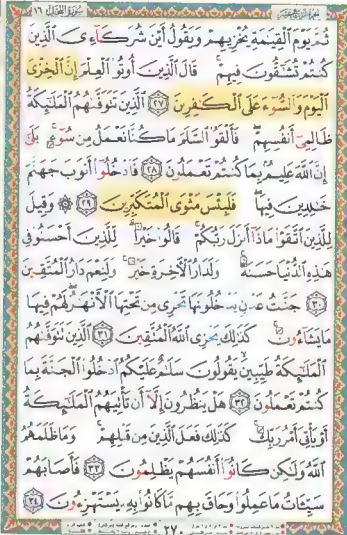 سورة النحل ١٦
ثُمَّ يَوْمَ الْقِيَمَةِ يُخْزِيهِمْ وَيَقُولُ أَيْنَ شُرَكَاءِىَ الَّذِينَ
كُنتُمْ تُشَقُّونَ فِيهِمْ قَالَ الَّذِينَ أُوتُوا الْعِلْمَ إِنَّ الْخِزْىَ
الْيَوْمَ وَالسُّوءَ عَلَى الْكَفِرِينَ ٢٧ الَّذِينَ تَتَوَفَّهُمُ الْمَلَئِكَةُ
ظَالِمِى أَنفُسِهِمْ فَأَلْقَوُا السَّلَمَ مَا كُنَّا نَعْمَلُ مِن سُوءٍ بَلَى
إِنَّ اللَّهَ عَلِيمٌ بِمَا كُنتُمْ تَعْمَلُونَ ٢٨ فَادْخُلُوا أَبْوَبَ جَهَنَّمَ
خَلِدِينَ فِيهَا فَلَبِئْسَ مَثْوَى الْمُتَكَبِّرِينَ ٢٩ ۞ وَقِيلَ
لِلَّذِينَ اتَّقَوْا مَاذَا أَنزَلَ رَبُّكُمْ قَالُوا خَيْرًا لِّلَّذِينَ أَحْسَنُوا فِى
هَذِهِ الدُّنْيَا حَسَنَةٌ وَلَدَارُ الْآخِرَةِ خَيْرٌ وَلَنِعْمَ دَارُ الْمُتَّقِينَ
٣٠ جَنَّتُ عَدْنٍ يَدْخُلُونَهَا تَجْرِى مِن تَحْتِهَا الْأَنْهَرُ لَهُمْ فِيهَا
مَا يَشَاءُونَ كَذَلِكَ يَجْزِى اللَّهُ الْمُتَّقِينَ ٣١ الَّذِينَ تَتَوَفَّهُمُ
الْمَلَئِكَةُ طَيِّبِينَ يَقُولُونَ سَلَمٌ عَلَيْكُمُ ادْخُلُوا الْجَنَّةَ بِمَا
كُنتُمْ تَعْمَلُونَ ٣٢ هَلْ يَنظُرُونَ إِلَّا أَن تَأْتِيَهُمُ الْمَلَئِكَةُ
أَوْ يَأْتِىَ أَمْرُ رَبِّكَ كَذَلِكَ فَعَلَ الَّذِينَ مِن قَبْلِهِمْ وَمَا ظَلَمَهُمُ
اللَّهُ وَلَكِن كَانُوا أَنفُسَهُمْ يَظْلِمُونَ ٣٣ فَأَصَابَهُمْ
سَيِّئَاتُ مَا عَمِلُوا وَحَاقَ بِهِم مَّا كَانُوا بِهِ يَسْتَهْزِءُونَ ٣٤
٢٧٠